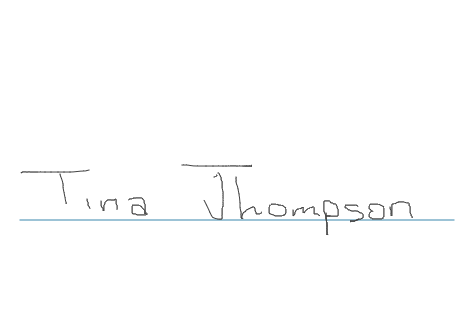 Tina Thompson